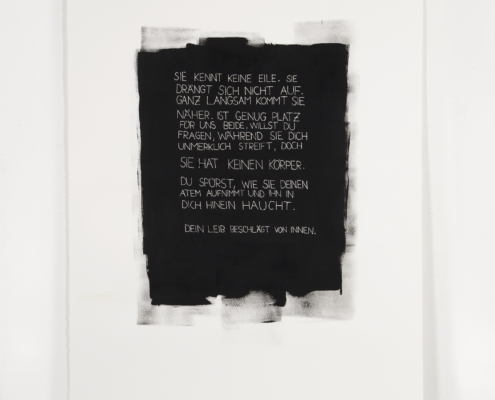 SIE KENNT KEINE EILE. SIE
DRÄNGT SICH NICHT AUF.
GANZ LANGSAM KOMMT SIE
NÄHER. IST GENUG PLATZ
FÜR UNS BEIDE, WILLST DU
FRAGEN, WÄHREND SIE DICH
UNMERKLICH STREIFT, DOCH
SIE HAT KEINEN KÖRPER.
DU SPÜRST, WIE SIE DEINEN
ATEM AUFNIMMT UND IHN IN
DICH HINEIN HAUCHT.
DEIN LEIB BESCHLÄGT VON INNEN.